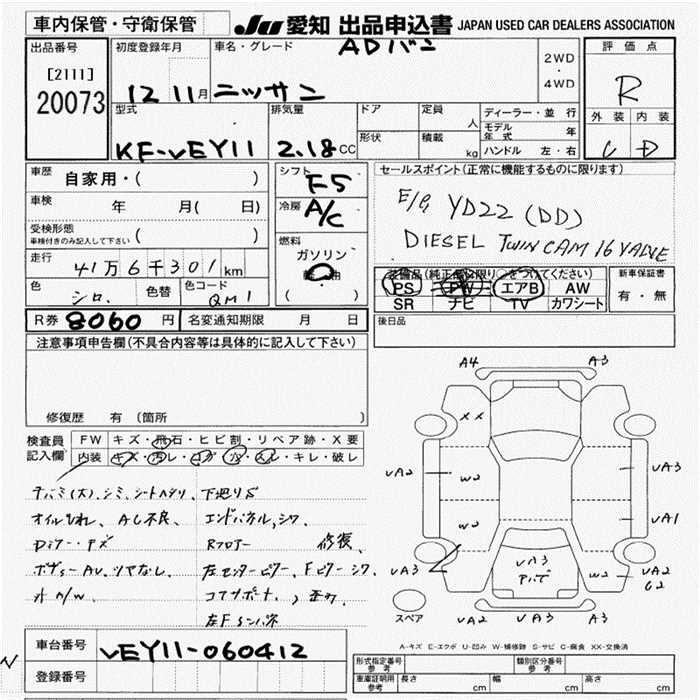 車内保管・守衛保管
JU 愛知 出品申込書 JAPAN USED CAR DEALERS ASSOCIATION
出品番号
[2111]
20073
初度登録年月
12 11月
車名・グレード
ADバン
ニッサン
2WD
・
4WD
評価点
R
外装 内装
D
型式
KF-VEY11
排気量
2.18 CC
ドア
形状
定員 人
積載 kg
ディーラー・並行
モデル年式 年
ハンドル 左・右
車歴 自家用・( )
車検 年 月( 日)
受検形態
車検付きのみ記入して下さい ( )
走行 41万6千301km
色 シロ. 色替 色コード QM1
シフト F5
冷房 A/C
燃料
ガソリン
軽油
( )
セールスポイント(正常に機能するものに限ります)
E/G YD22 (DD)
DIESEL TWIN CAM 16 VALVE
装備品(純正品に限り○をつけてください)
PS PW エアB AW
SR ナビ TV カワシート
新車保証書
有・無
R券 8060円 名変通知期限 月 日
後日品
注意事項申告欄(不具合内容等は具体的に記入して下さい)
修復歴 有 (箇所
検査員
記入欄
FW キズ・飛石・ヒビ割・リペア跡・X要
内装 キズ・汚レ・コゲ・穴・スレ・キレ・破レ
オイルもれ、AC不良、
エンドパネル,シワ.
Rフロアー 修復、
ボディーAU,ツヤなし、
左センターピラー、Fピラーシワ.
A4 A3
XX
UA2 W2 UA3
W2 UA1
UA3 UA3 W2 UA2
G2
スペア
UA2 UA3 A3
A-キズ E-エクボ U-凹み W-補修跡 S-サビ C-腐食 XX-交換済
車台番号 VEY11-060412
登録番号
形式指定番号
参考
類別区分番号
参考
車庫証明用
参考
長さ cm 幅 cm 高さ cm